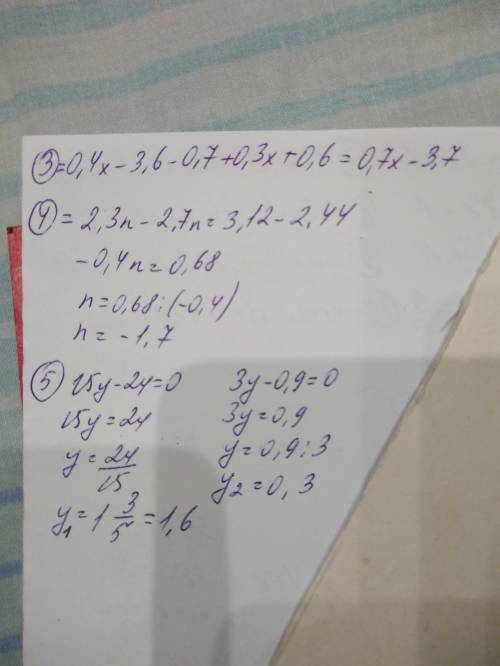 ③=0,4x-3,6-0,7+0,3x+0,6=0,7x-3,7
④=2,3n-2,7n=3,12-2,44
-0,4n=0,68
n=0,68:(-0,4)
n=-1,7
⑤ 15y-24=0 3y-0,9=0
15y=24 3y=0,9
y=24/15 y=0,9:3
y₁=1 3/5=1,6 y₂=0,3